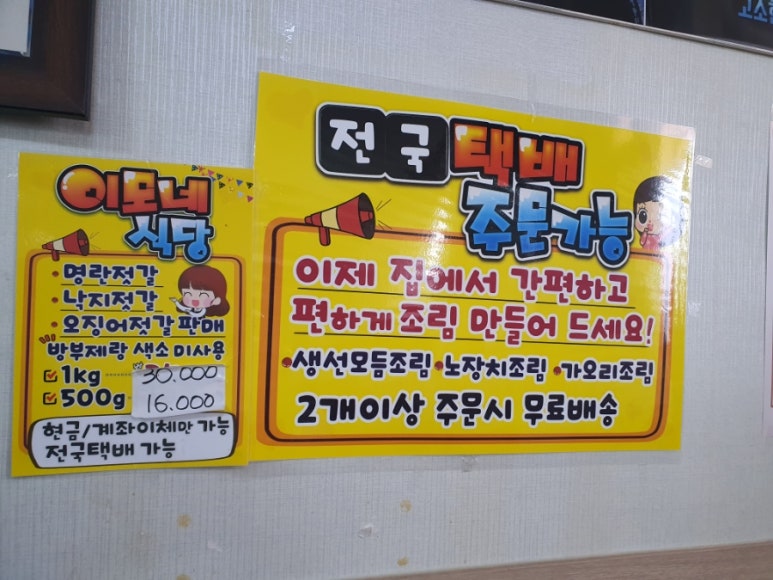 이모네
식당
·명란젓갈
·낙지젓갈
·오징어젓갈 판매
방부제랑 색소 미사용
1kg 30.000
500g 16.000
현금/계좌이체만 가능
전국택배 가능
전국택배
주문가능
이제 집에서 간편하고
편하게 조림 만들어 드세요!
•생선모듬조림 •노장치조림 •가오리조림
2개이상 주문시 무료배송
고소한